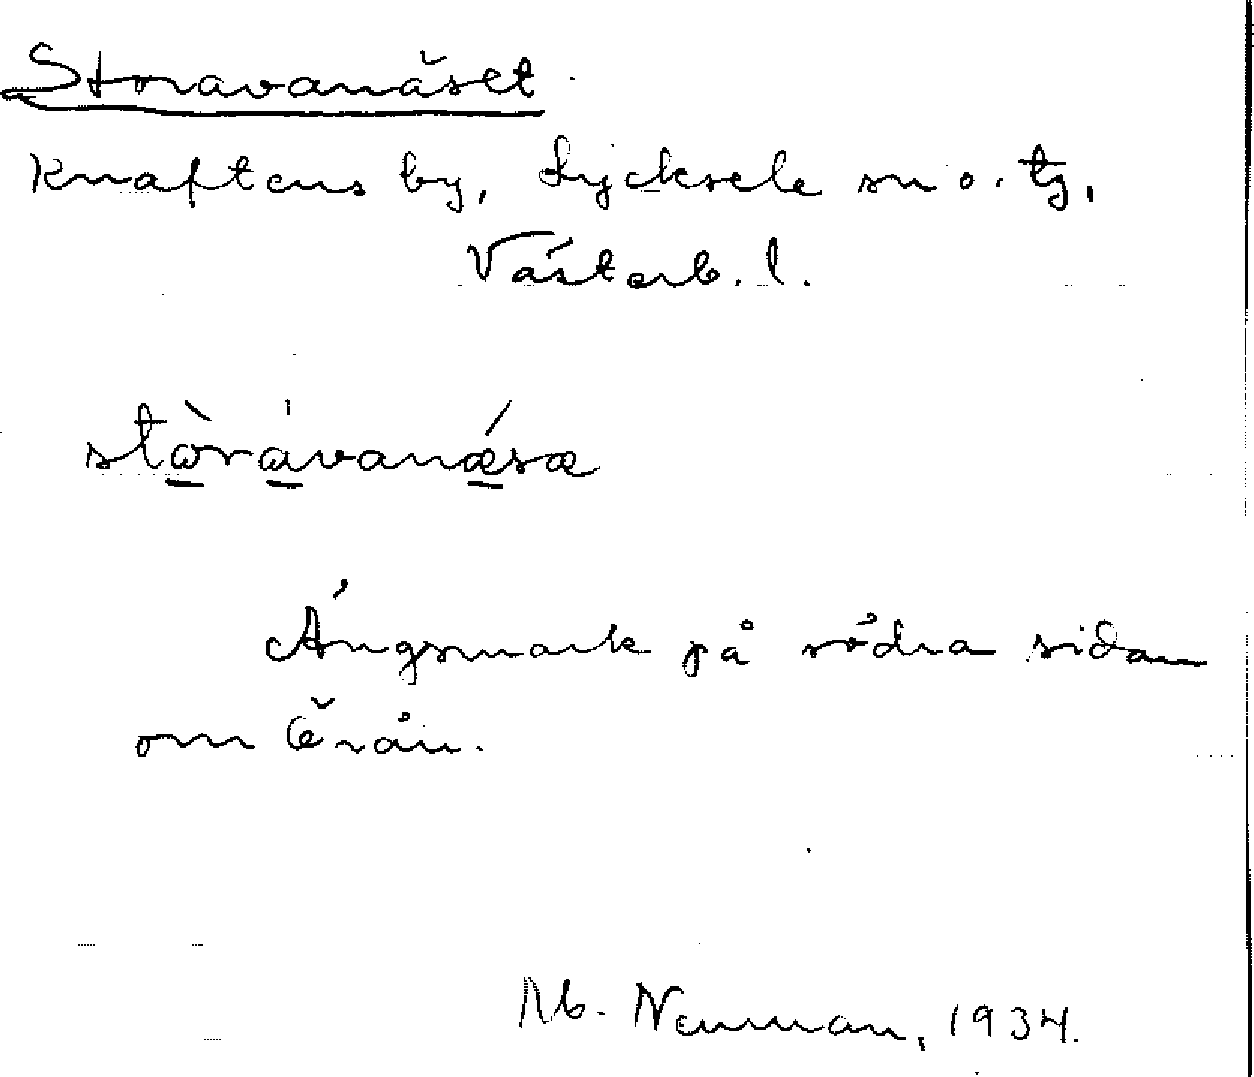 Storavanäset
Knaftens by, Lycksele sn o. tg,
Västerb. l.
stòrávanǽsæ
Ängsmark på södra sidan
om Örån.
M. Neuman, 1934.